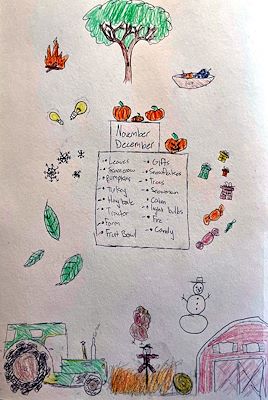 November
December
Leaves
Scarecrow
pumpkins
Turkey
Haybale
Tractor
Farm
Fruit Bowl
Gifts
Snowflakes
Trees
Snowman
light bulbs
Fire
Candy